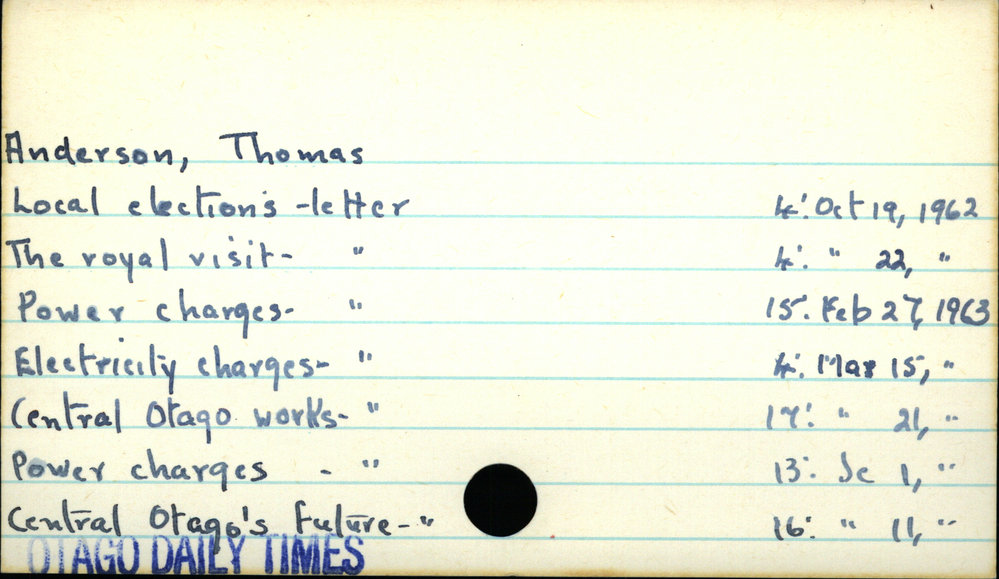 Anderson, Thomas
Local elections -letter 4: Oct 19, 1962
The royal visit- " 4: " 22, "
Power charges- " 15: Feb 27, 1963
Electricity charges- " 4: Mar 15, "
Central Otago works- " 17: " 21, "
Power charges - " 13: Je 1, "
Central Otago's future- " 16: " 11, "
OTAGO DAILY TIMES